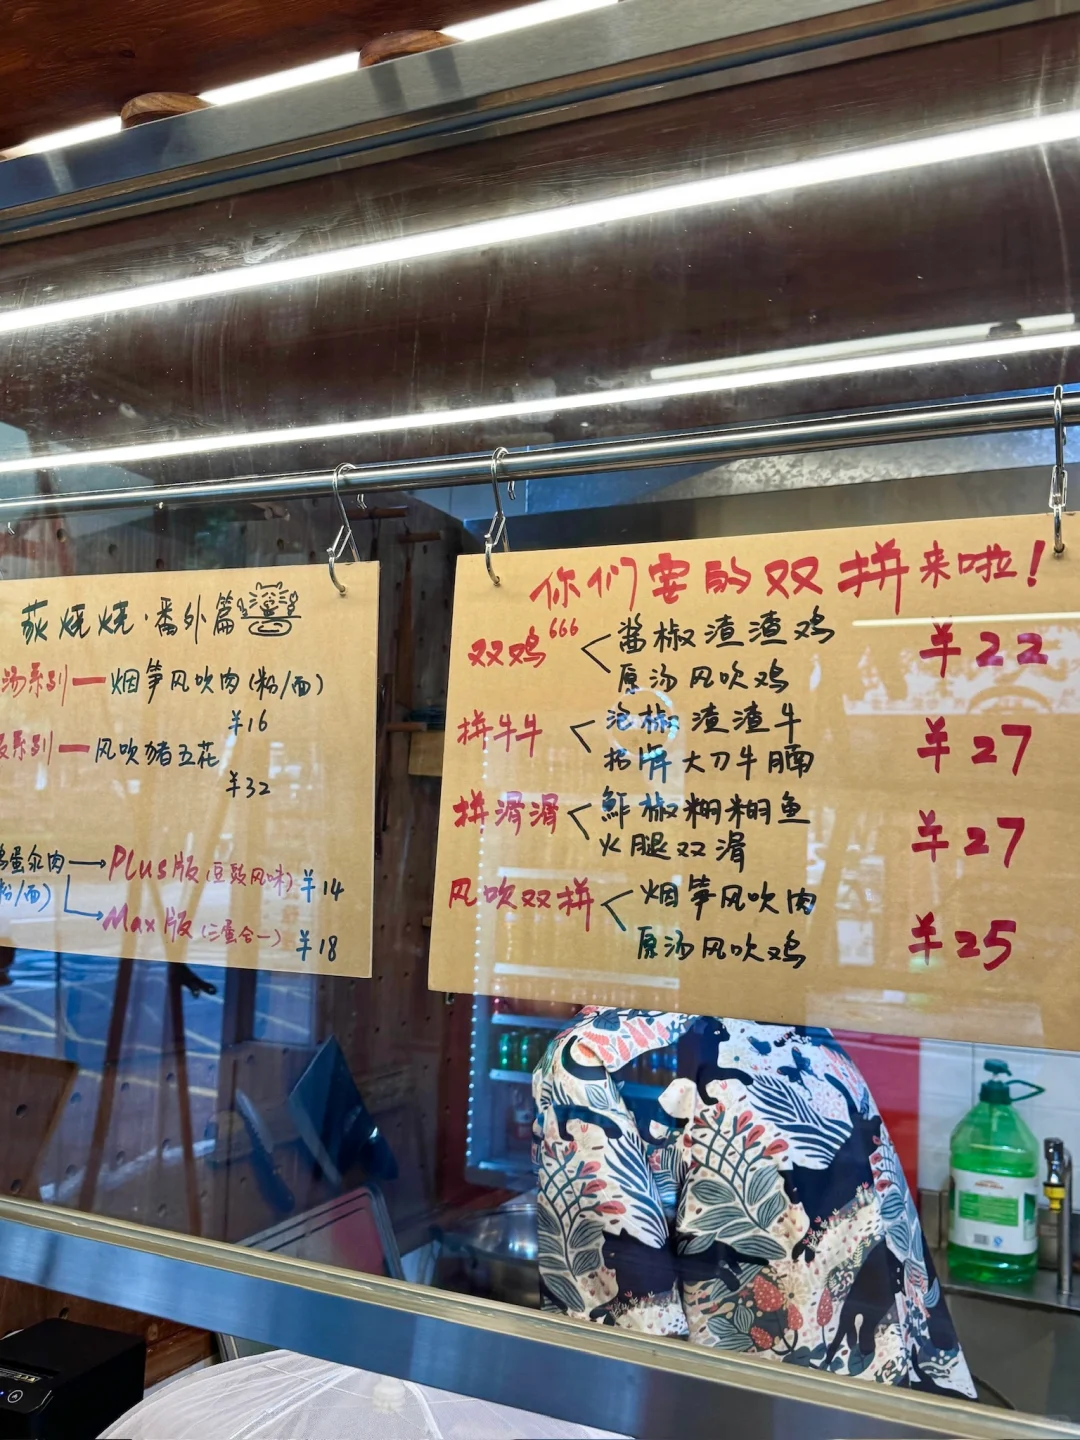 荻烧烧·番外篇
汤系列—烟笋风吹肉(粉/面)
¥16
系列—风吹猪五花
¥32
蛋汆肉→Plus版(豆豉风味) ¥14
粉/面)
Max版(三蛋合一) ¥18
你们要的双拼来啦!
双鸡666
酱椒渣渣鸡
原汤风吹鸡
¥22
拼牛牛
泡椒渣渣牛
招牌大刀牛腩
¥27
拼滑滑
鲊椒糊糊鱼
火腿双滑
¥27
风吹双拼
烟笋风吹肉
原汤风吹鸡
¥25